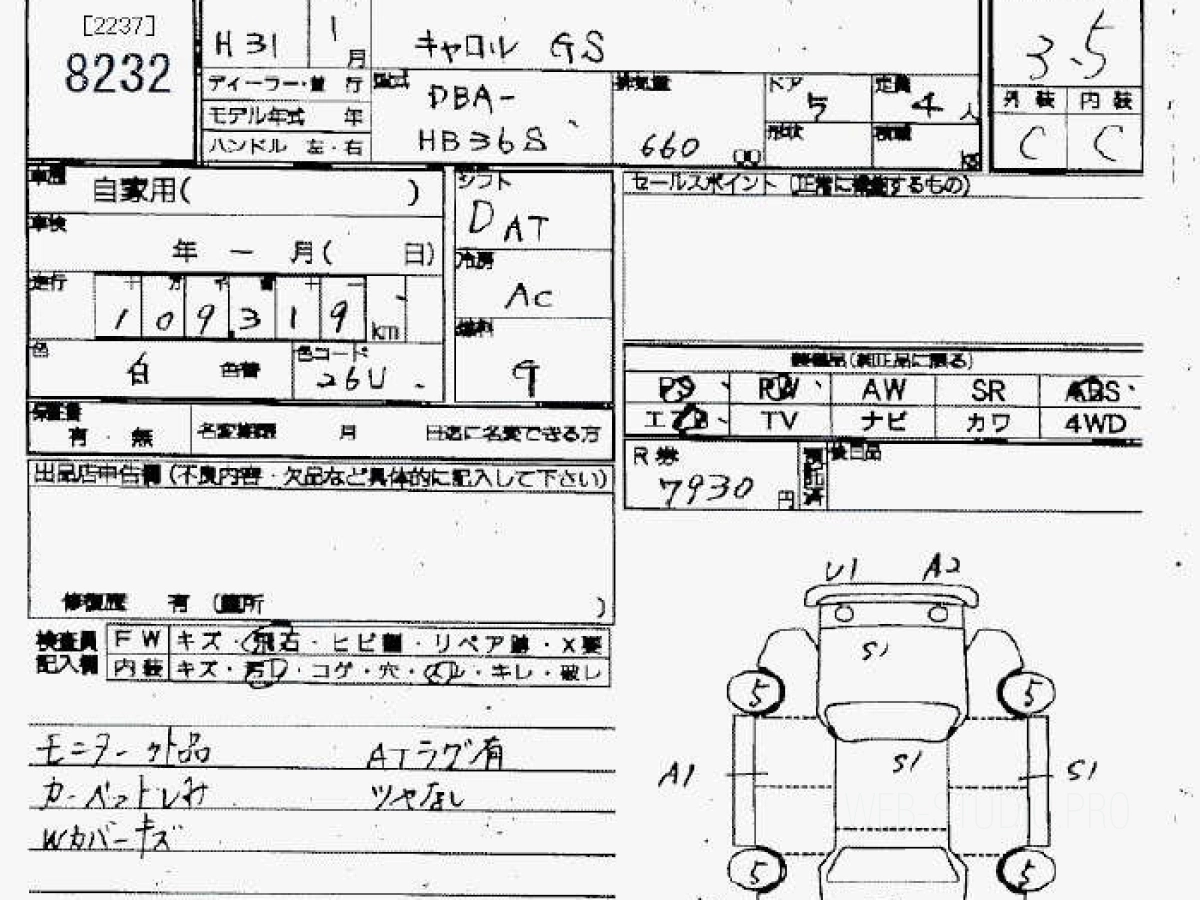 [2237]
8232
H 31 1月
キャロル GS
3.5
ディーラー・並 行
モデル年式 年
ハンドル 左・右
型式 DBA-
HB36S
排気量
660 CC
ドア 5
定員 4 人
形状
積載 kg
外装 内装
C C
車歴 自家用( )
車検
年 ー 月( 日)
走行 十 万 千 百 十 一
1 0 9 3 1 9 km
色 白 色替
色コード 26U
シフト
D AT
冷房
AC
燃料
G
セールスポイント (正常に機能するもの)
装備品(純正品に限る)
PS PW AW SR ABS
エアB TV ナビ カワ 4WD
保証書
有・無
名変期限 月 日迄に名変できる方
R券
7930 円
預託済
後日品
出品店申告欄(不良内容・欠品など具体的に記入して下さい)
修復歴 有 (箇所 )
検査員
記入欄
FW キズ・飛石・ヒビ割・リペア跡・X要
内装 キズ・汚レ・コゲ・穴・スレ・キレ・破レ
モニター外品 ATラグ有
カーペットしみ ツヤなし
Wカバーキズ
U1 A2
S1
5 5
S1
A1 S1
5 5
WEB-STUDIO PRO